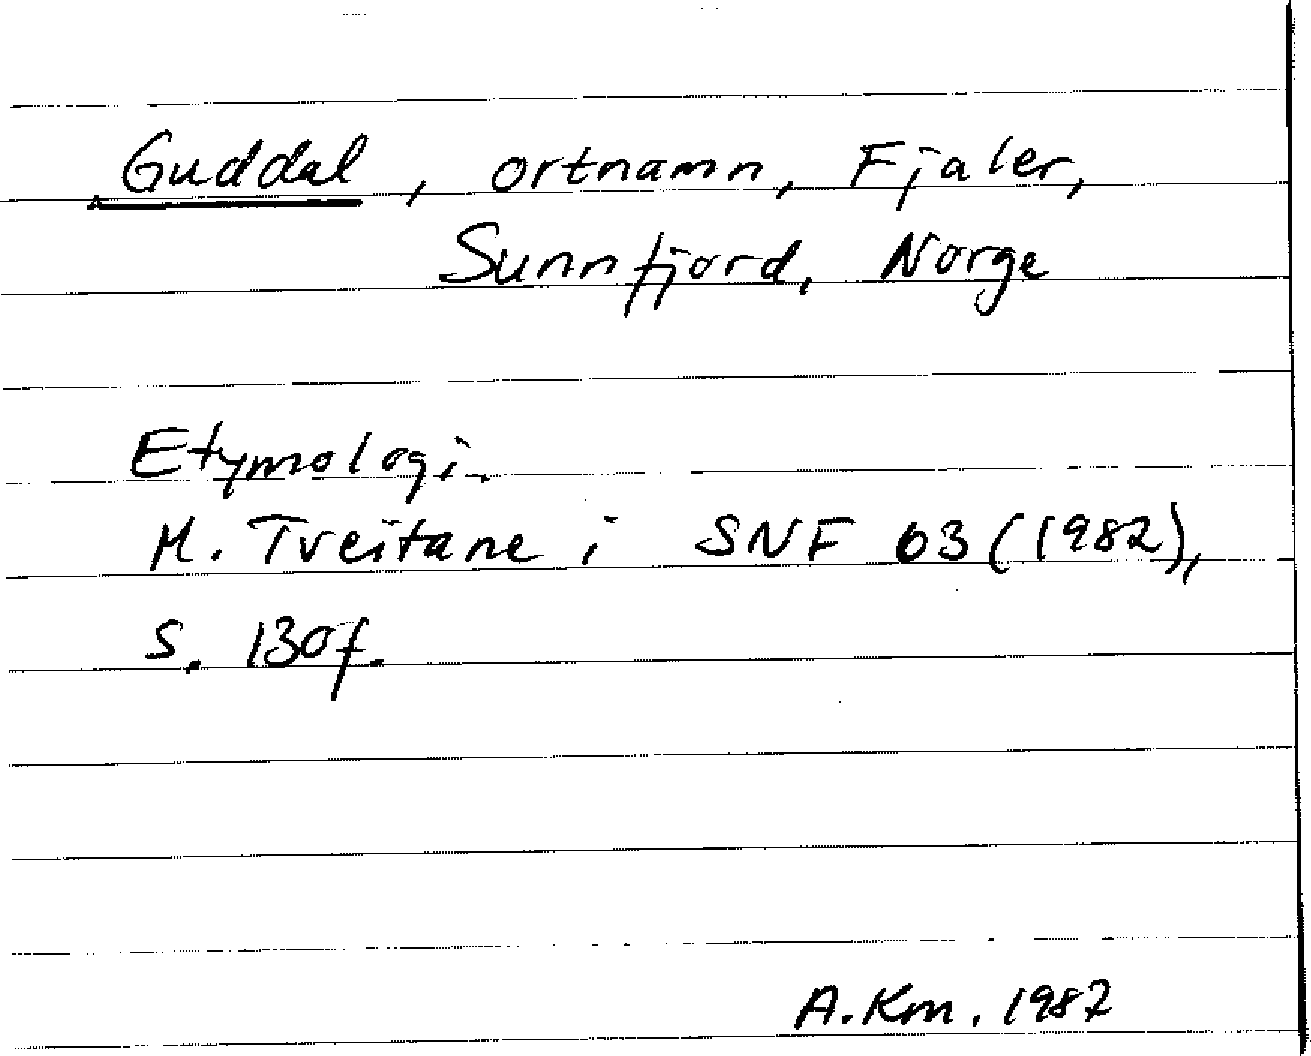 Guddal, ortnamn, Fjaler,
Sunnfjord, Norge
Etymologi.
M. Tveitane i SNF 63 (1982),
s. 130f.
A. Km. 1987